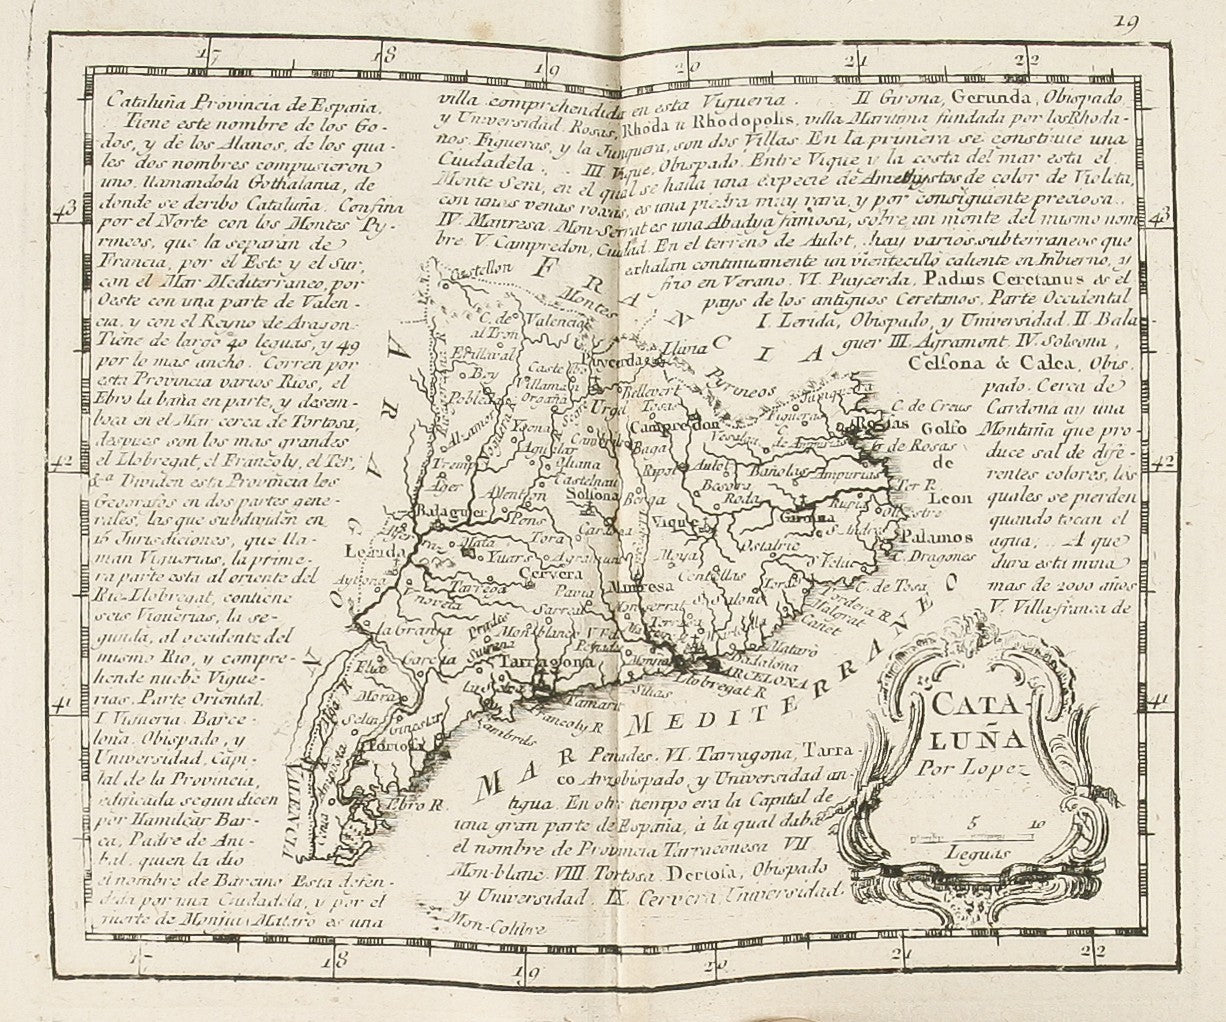 19
17 18 19 20 21 22
Cataluña Provincia de España.
Tiene este nombre de los Go-
dos, y de los Alanos, de los qua-
les dos nombres compusieron
uno, llamandola Gothalania, de
donde se deribo Cataluña. Confina
por el Norte con los Montes Py-
rineos, que la separan de
Francia, por el Este y el Sur,
con el Mar Mediterraneo, por
Oeste con una parte de Valen-
cia, y con el Reyno de Aragon.
Tiene de largo 40 leguas, y 49
por lo mas ancho. Corren por
esta Provincia varios Rios, el
Ebro la baña en parte, y desem-
boca en el Mar cerca de Tortosa,
despues son los mas grandes
el Llobregat, el Francoly, el Ter,
&.a Dividen esta Provincia los
Geografos en dos partes gene-
rales, las que subdividen en
15 Jurisdiciones, que lla-
man Viguerias, la prime-
ra parte esta al oriente del
Rio Llobregat, contiene
seis Viguerias, la se-
gunda, al occidente del
mismo Rio, y compre-
hende nuebe Vigue-
rias. Parte Oriental,
I. Vigueria. Barce-
lona. Obispado, y
Universidad, Capi-
tal de la Provincia,
edificada segun dicen
por Hamilcar Bar-
ca, Padre de Ani-
bal, quien la dio
el nombre de Barcino Esta defen-
dida por una Ciudadela, y por el
fuerte de Monjui. Mataro es una
villa comprehendida en esta Vigueria. II Girona, Gerunda, Obispado
y Universidad. Rosas, Rhoda u Rhodopolis, villa Maritima fundada por los Rhoda-
nos. Figueras, y la Junquera, son dos Villas. En la primera se construie una
Ciudadela. III Vique, Obispado. Entre Vique y la costa del mar esta el
Monte Seni, en el qual se halla una expecie de Amethystos de color de Violeta,
con unas venas roxas, es una piedra muy rara, y por consiguiente preciosa.
IV Manresa. Mon-Serrat es una Abadya famosa, sobre un monte del mismo nom
bre. V. Campredon, Ciudad. En el terreno de Aulot, hay varios subterraneos que
exhalan continuamente un vientecillo caliente en Inbierno, y
frio en Verano. VI. Puycerda, Padius Ceretanus es el
pays de los antiguos Ceretanos. Parte Occidental
I. Lerida, Obispado, y Universidad. II Bala-
guer III. Agramont. IV. Solsona,
Celsona & Calea, Obis-
pado. Cerca de
Cardona ay una
Montaña que pro
duce sal de dife-
rentes colores, los
quales se pierden
quando tocan el
agua, A que
dura esta mina
mas de 2000 años
V. Villa-franca de
Penades. VI. Tarragona, Tarra-
co Arzobispado, y Universidad an-
tigua. En otro tiempo era la Capital de
una gran parte de España, à la qual daba
el nombre de Provincia Tarraconesa VII
Mon-blanc. VIII Tortosa, Dertosa, Obispado
y Universidad. IX Cervera, Universidad.
FRANCIA
Montes
Pyrineos
ARAGON
VALENCIA
MAR MEDITERRANEO
Castellon
C. de Valencia
al Tron
Puycerda
Llivia
Boy
Villamur
Orgaña
Urgel
Bellever
Tosa
Campredon
Figueras
Junquera
C. de Creus
Rosas
Golfo
G. de Rosas
de
Leon
Pobla
Baga
Ripol
Aulot
Bañolas
Ampurias
Besora
Roda
Ter R.
Tremp
Ager
Oliana
Castelnau
Solsona
Berga
Balaguer
Pons
Tora
Cardona
Vique
Girona
Rupia
Palamos
C. Dragones
Ostalric
Lerida
Aytona
Cervera
Tarrega
Manresa
Moya
Centellas
C. de Tosa
Tordera R.
Malgrat
Canet
Mataró
Badalona
BARCELONA
Llobregat R
Monserrat
Sarreal
Mon-blanc
Prades
la Granja
Garcia
Flix
Mora
Tarragona
Tamarit
Francoly R
Cambrils
Tortosa
Amposta
Ebro R.
Mon-Colibre
CATA-
LUÑA
Por Lopez
5 10
Leguas
43 43
42 42
41 41
17 18 19 20 21 22